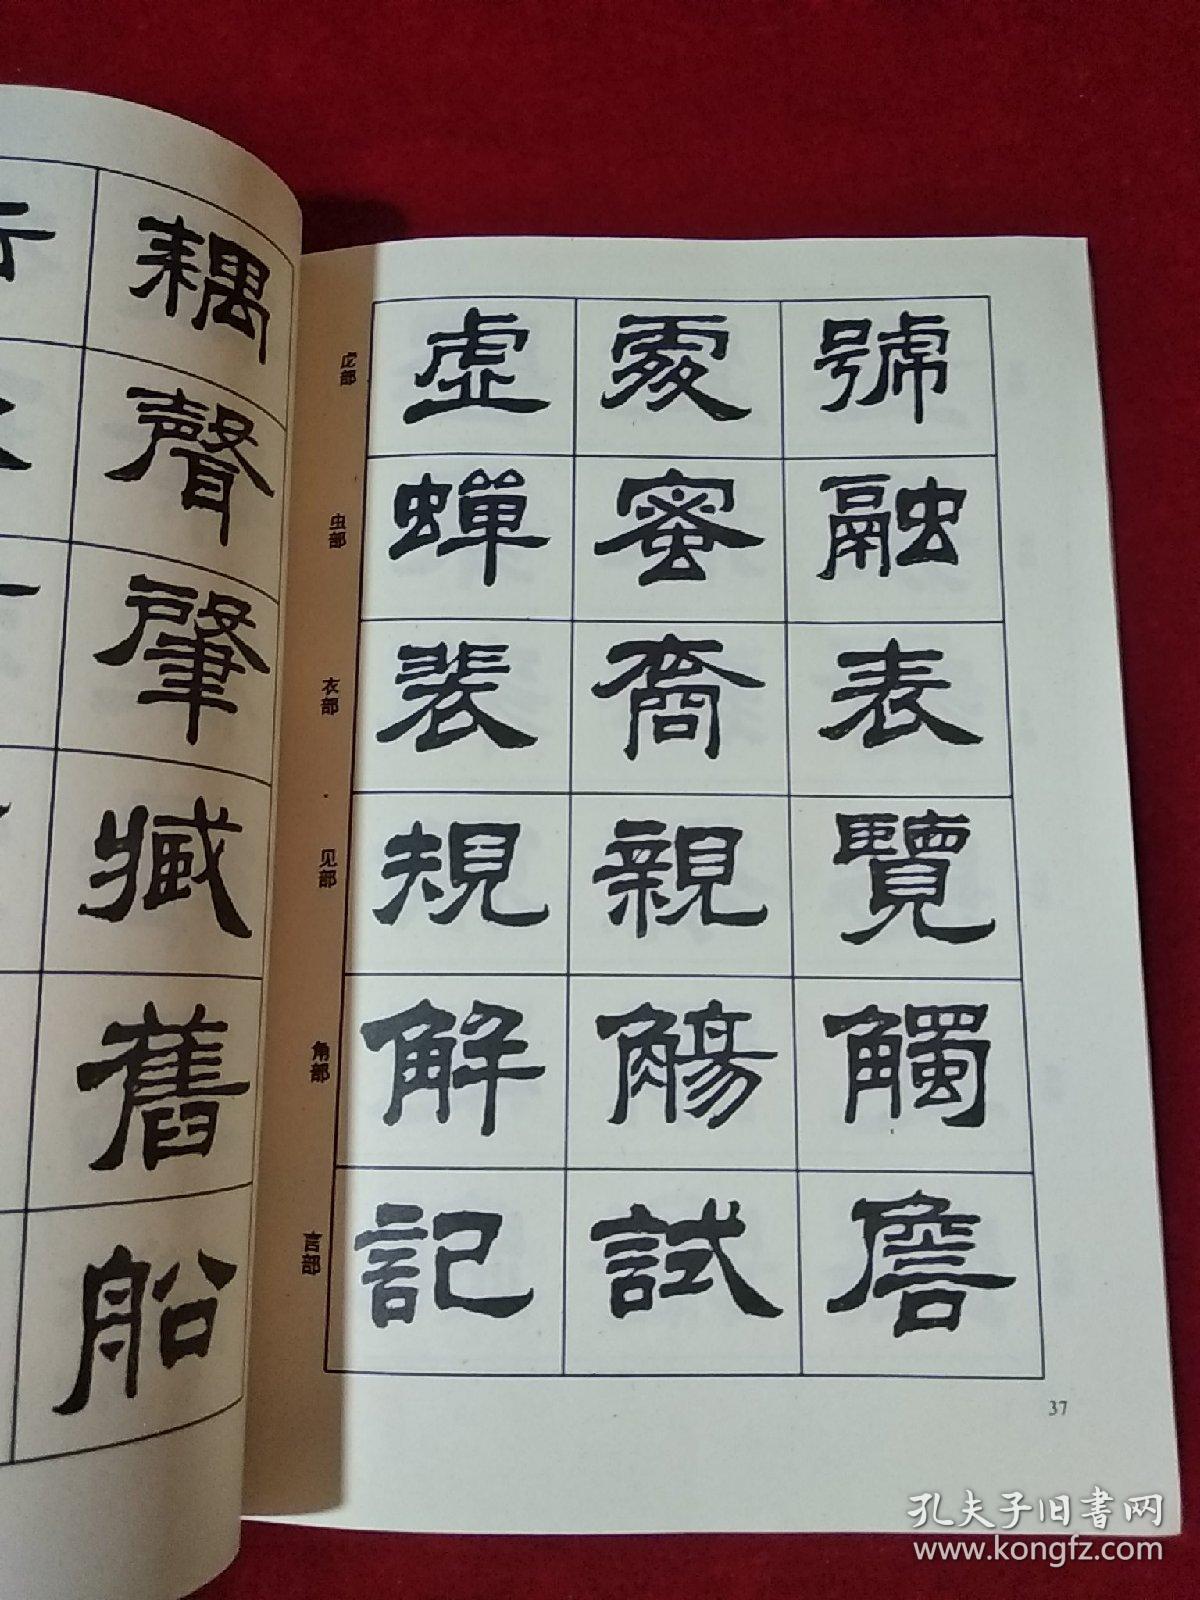 耦
聲
肇
臧
舊
船
虍部 虚 處 號
虫部 蟬 蜜 融
衣部 裴 裔 表
见部 規 親 覽
角部 解 觴 觸
言部 記 試 詹
37
孔夫子旧书网
www.kongfz.com